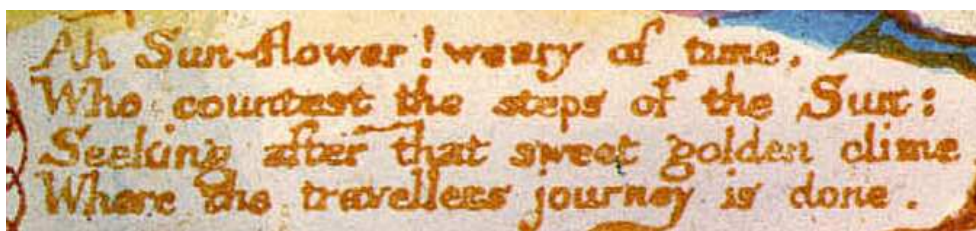 Ah Sun-flower! weary of time,
Who countest the steps of the Sun:
Seeking after that sweet golden clime
Where the travellers journey is done.